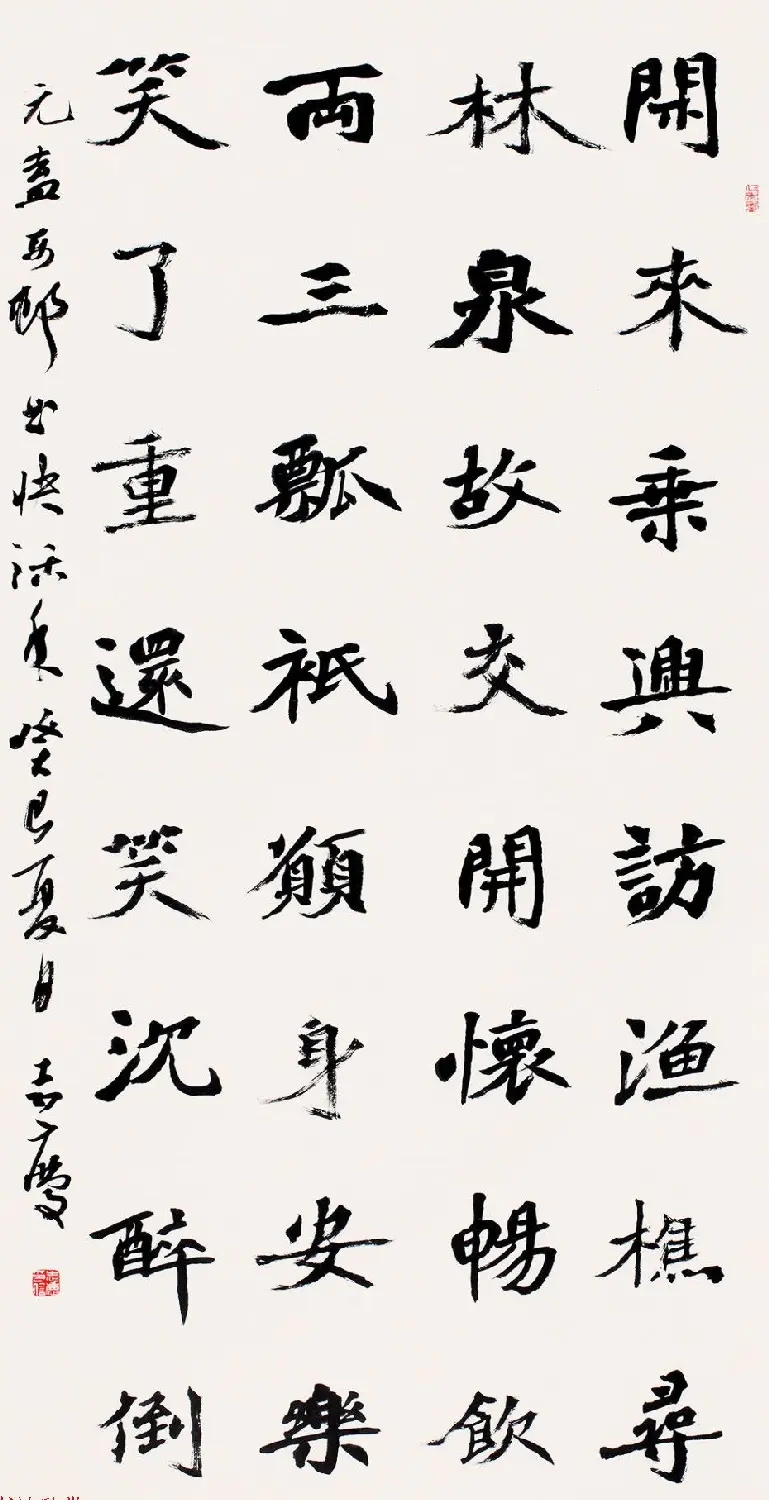 閑來乗興訪漁樵尋
林泉故交開懷暢飲
両三瓢衹願身安樂
笑了重還笑沉醉倒
元盍西邨出快活年癸巳夏月嘉慶